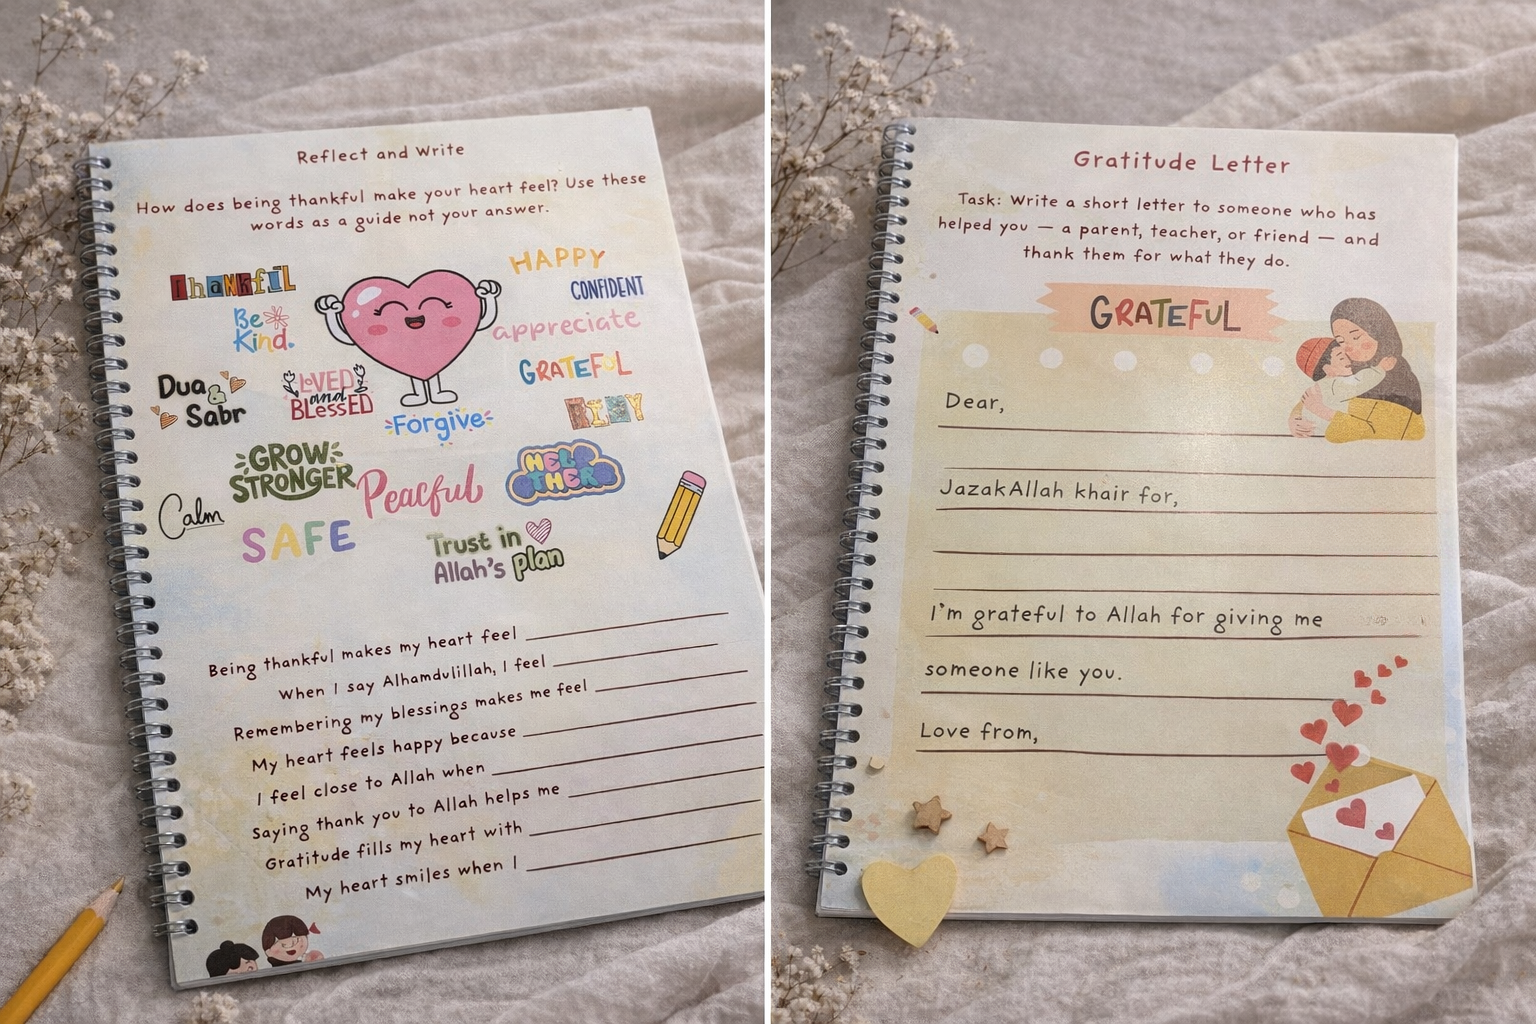 Reflect and Write
How does being thankful make your heart feel? Use these
words as a guide not your answer.
Thankful
HAPPY
CONFIDENT
Be
Kind.
appreciate
GRATEFUL
Dua &
Sabr
LOVED
and
BLessED
Forgive
GROW
STRONGER
Peacful
HELP
Calm
SAFE
Trust in
Allah's plan
Being thankful makes my heart feel
When I say Alhamdulillah, I feel
Remembering my blessings makes me feel
My heart feels happy because
I feel close to Allah when
Saying thank you to Allah helps me
Gratitude fills my heart with
My heart smiles when I
Gratitude Letter
Task: Write a short letter to someone who has
helped you — a parent, teacher, or friend — and
thank them for what they do.
GRATEFUL
Dear,
JazakAllah khair for,
I'm grateful to Allah for giving me
someone like you.
Love from,